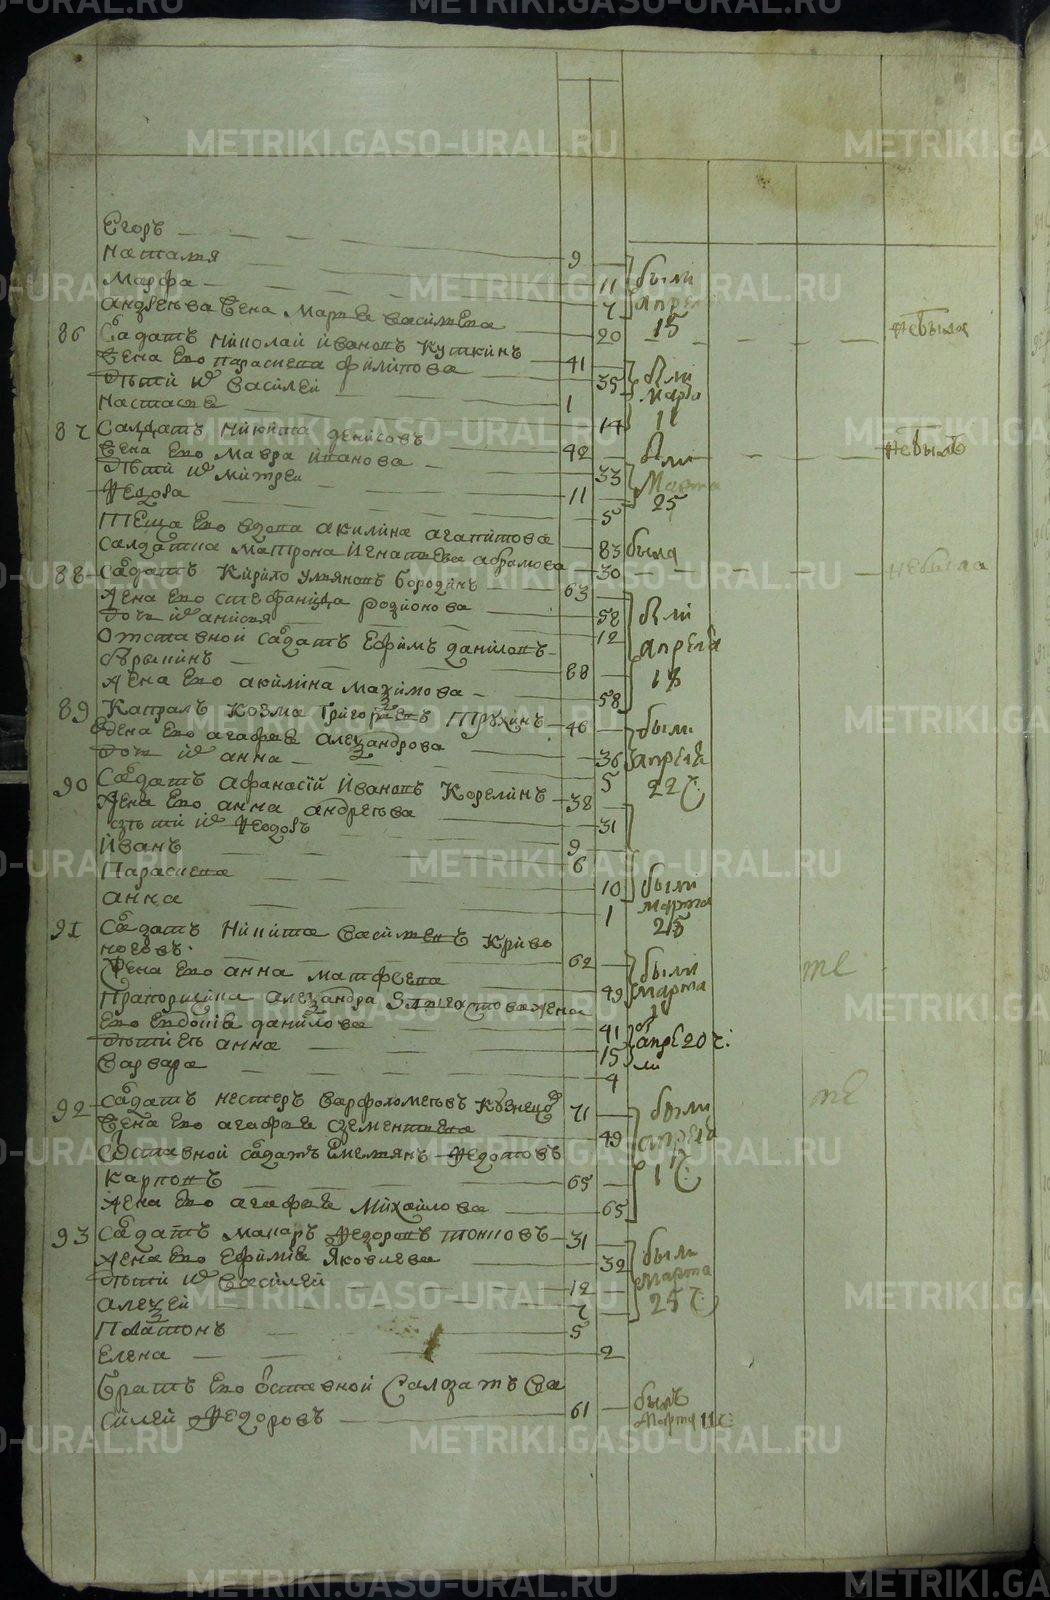 Егоръ 9
Наталья 11
Марфа 7
Андреева жена Марья Василева 20
были апреля 15
не была
86 Салдатъ Николай Ивановъ Куткинъ 41
Жена ево Парасковья Филипова 35
Дети их Василей 1
Настасья 14
были марта 11
87 Салдатъ Никита Денисовъ 42
Жена ево Мавра Иванова 33
Дети их Митрей 11
Федора 5
были марта 25
не былъ
Теща ево вдова Акилина Агапитова 83 была
Салдатка Матрона Игнатьева Абрамова 30
не была
88 Салдатъ Кирило Ульяновъ Бородинъ 63
Жена ево Стефанида Родионова 58
Дочь их Анисья 12
Отставной салдатъ Ефимъ Даниловъ
88
Жена ево Акилина Махимова 58
были апреля 18
89 Капралъ Козма Григорьевъ Трухинъ 46
Жена ево Агафья Александрова 36
Дочь их Анна 5
были апреля 22
90 Салдатъ Афанасий Ивановъ Корелинъ 38
Жена ево Анна Андреева 31
Дети их Федоръ 9
Иванъ 6
Парасковья 10
Анна 1
были марта 25
91 Салдатъ Никита Васильевъ Криво
ноговъ 62
Жена ево Анна Матфеева 49
были марта
Прапорщика Александра жена
ево Евдокия Данилова 41
Дети ея Анна 15
Варвара 4
апре 20 ч:
ли
92 Салдатъ Нестеръ Варфоломеевъ Кузнецов 71
Жена ево Агафья 49
Отставной салдатъ Емельянъ Федотовъ
Карповъ 65
Жена ево Агафья Михайлова 65
были апреля
93 Салдатъ Макаръ Федоровъ 31
Жена ево Ефимия Яковлева 32
Дети их Василей 12
Алексей 7
Платонъ 5
Елена 2
были марта 25 ч:
Братъ ево отставной салдатъ Ва
силей Федоровъ 61
былъ марта 11 ч: